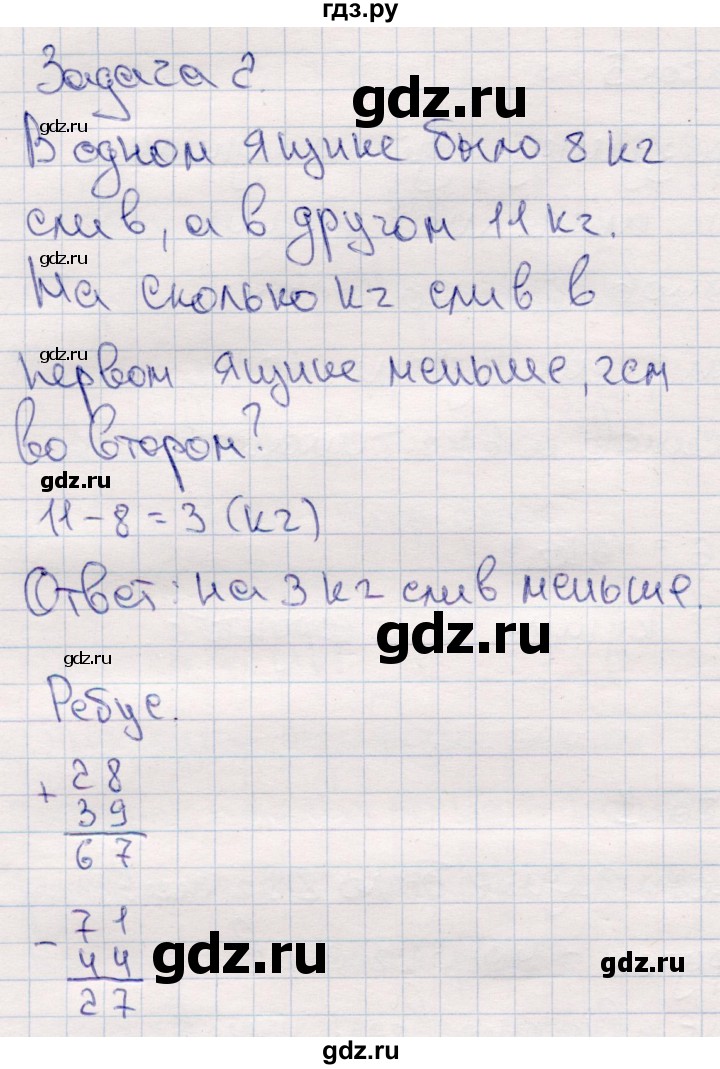 гдз.ру
Задача 2.
gdz.ru
gdz.ru
В одном ящике было 8 кг
слив, а в другом 11 кг.
gdz.ru
На сколько кг слив в
gdz.ru
первом ящике меньше, чем
во втором?
gdz.ru
11 - 8 = 3 (кг)
Ответ: на 3 кг слив меньше.
gdz.ru
gdz.ru
Ребус.
+ 28
39
67
- 71
44
27
gdz.ru
gdz.ru
gdz.ru